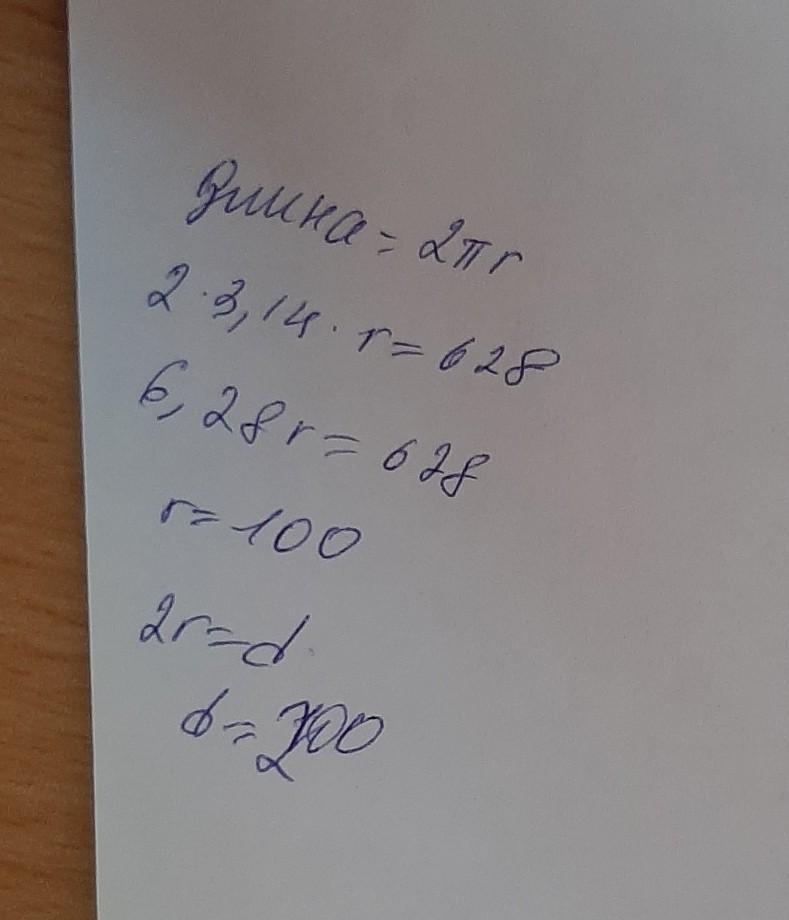 Длина = 2πr
2·3,14·r=628
6,28r=628
r=100
2r=d
d=200